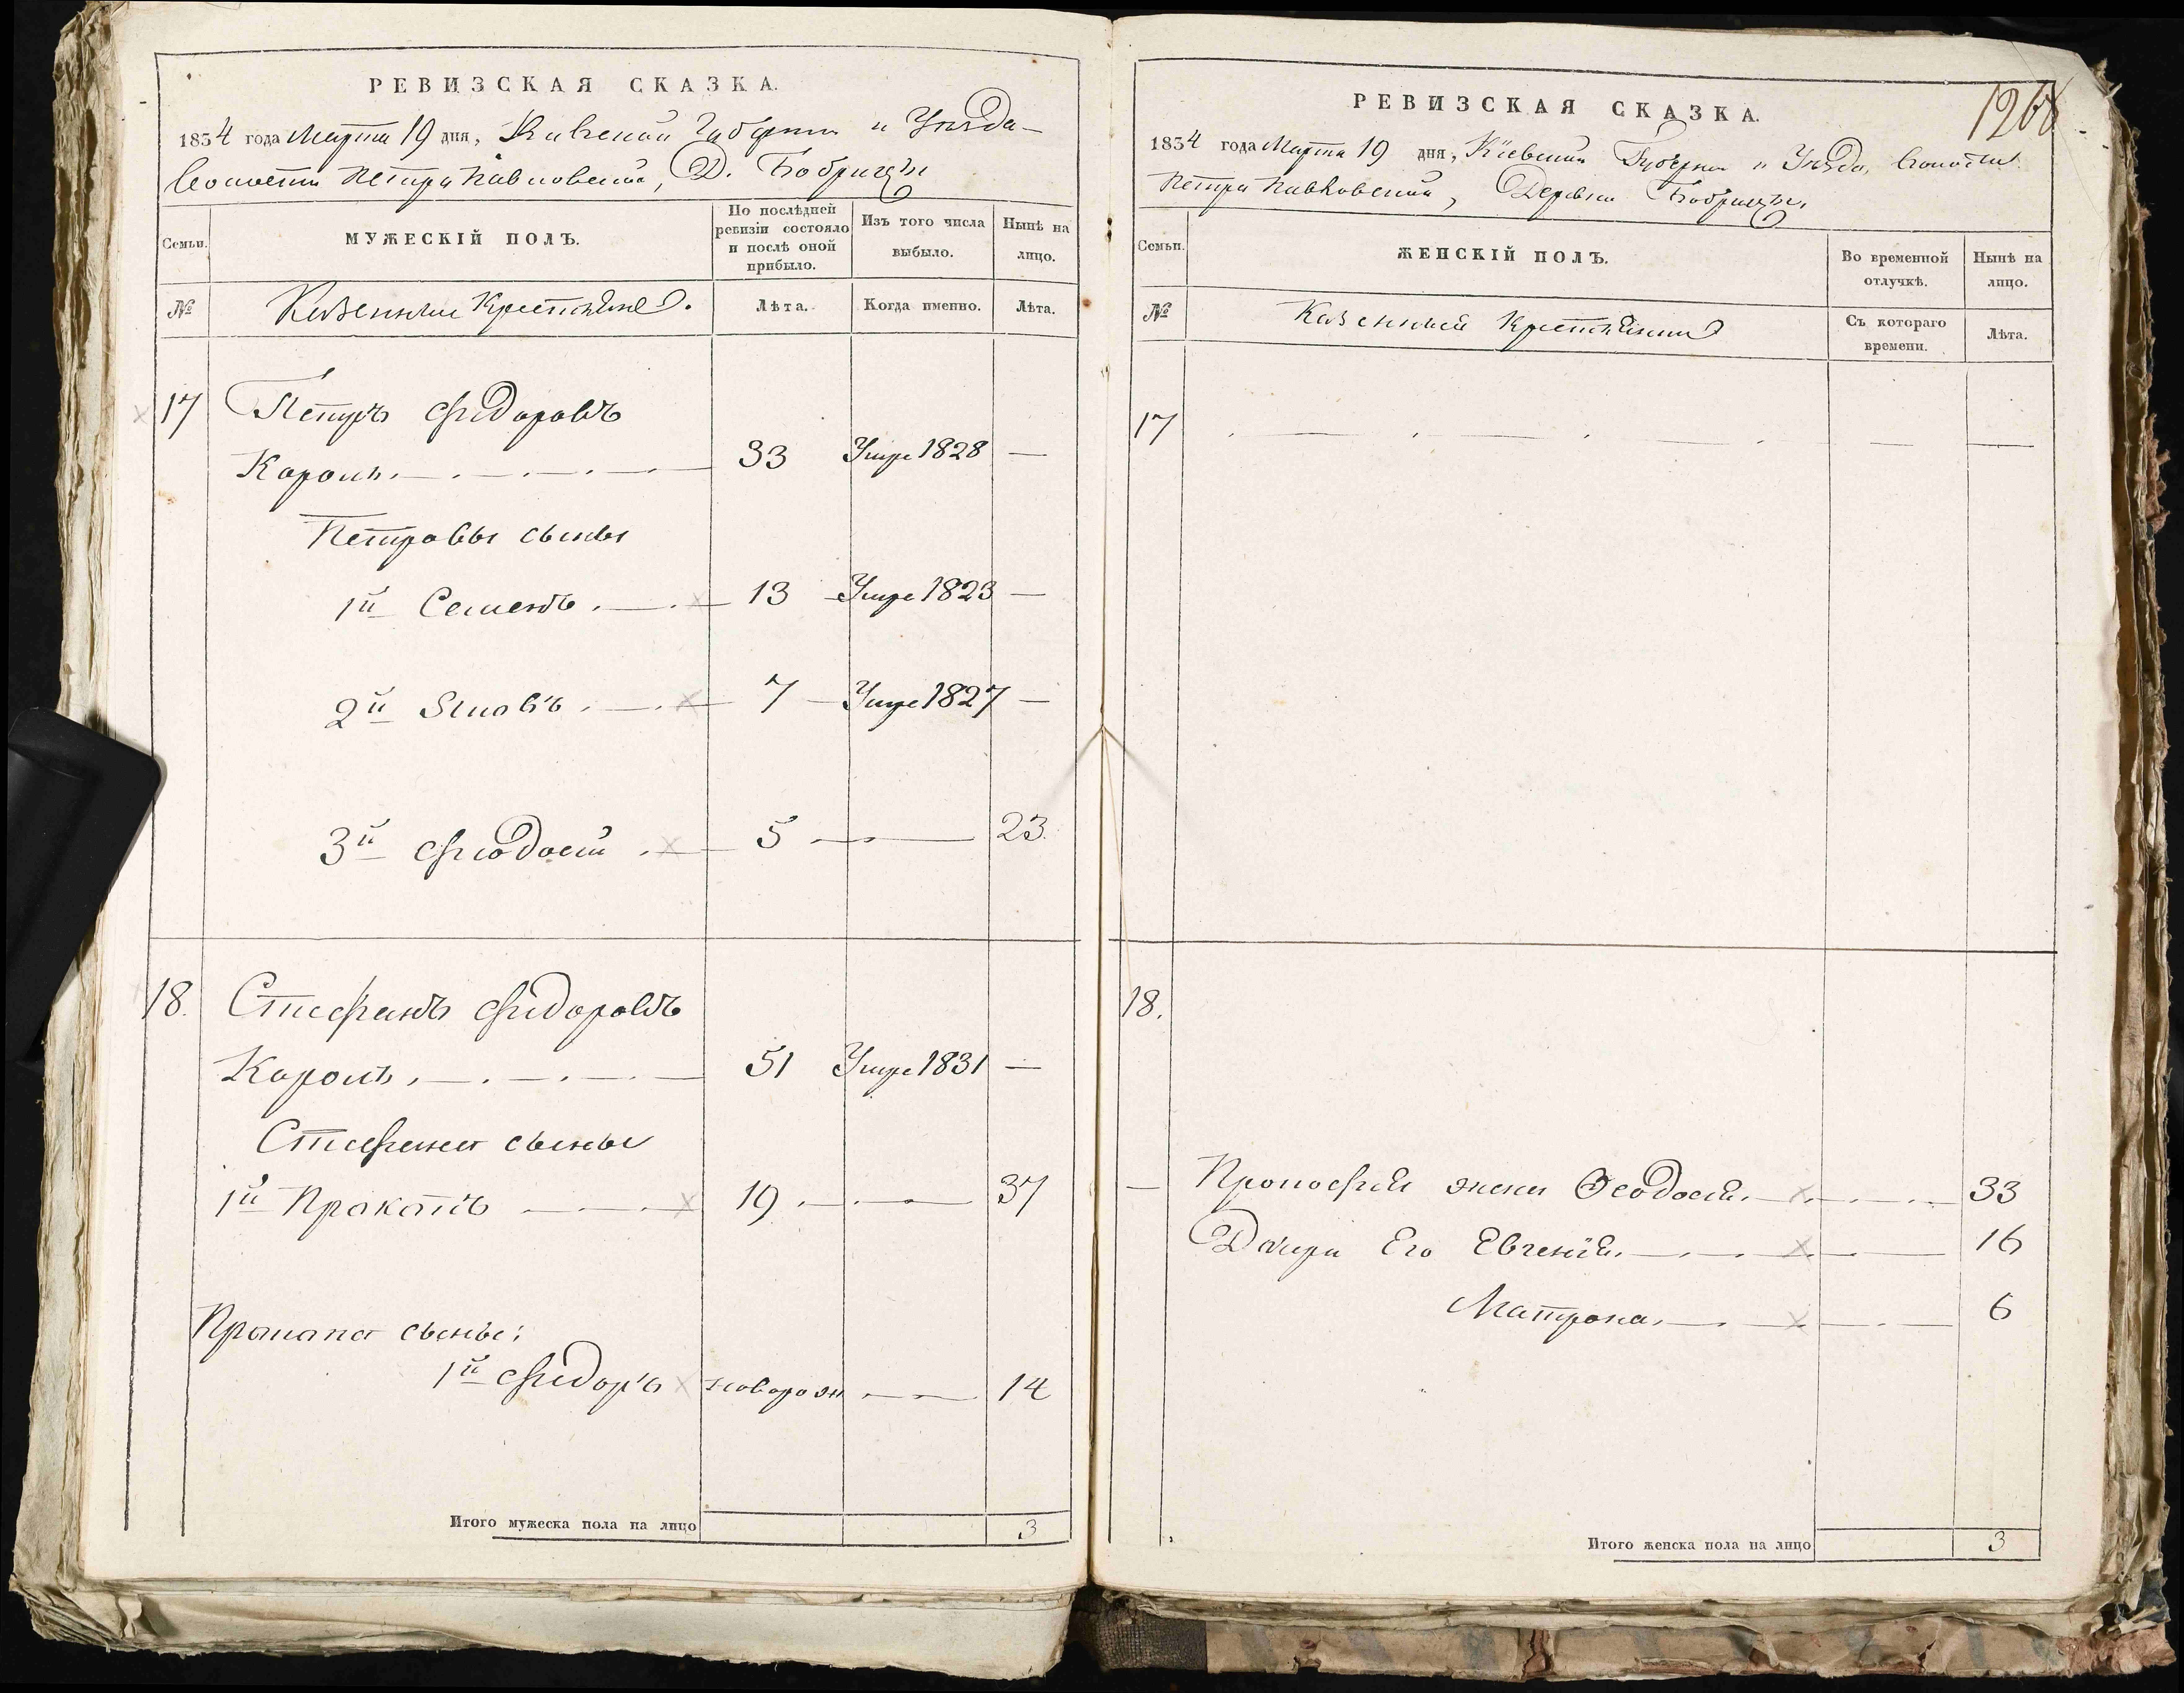 РЕВИЗСКАЯ СКАЗКА.
1834 года Марта 19 дня, Киевской Губернии и Уезда
Волости Петропавловской, Д. Бобрицы
Семьи.
МУЖЕСКІЙ ПОЛЪ.
По послѣдней ревизіи состояло и послѣ оной прибыло.
Изъ того числа выбыло.
Нынѣ на лицо.
№
Казенные Крестьяне.
Лѣта.
Когда именно.
Лѣта.
17 Петръ Фидоровъ
Король 33 Умре 1828 —
Петровы сыны
1й Семенъ 13 Умре 1823 —
2й Яковъ 7 Умре 1827 —
3й Фиодосий 5 — 23
18. Стефанъ Фидоровъ
Король 51 Умре 1831 —
Стефана сыны
1й Прокопъ 19 — 37
Прокопа сыны:
1й Фидоръ новорож — 14
Итого мужеска пола на лицо 3
1268
РЕВИЗСКАЯ СКАЗКА.
1834 года Марта 19 дня, Кіевской Губернии и Уезда, Волости
Петропавловской, Деревни Бобрицы,
Семьи.
ЖЕНСКІЙ ПОЛЪ.
Во временной отлучкѣ.
Нынѣ на лицо.
№
Казенные Крестьянки
Съ котораго времени.
Лѣта.
17 — — —
18.
— жена Феодосия 33
Дочери Его Евгенія 16
Матрона 6
Итого женска пола на лицо 3